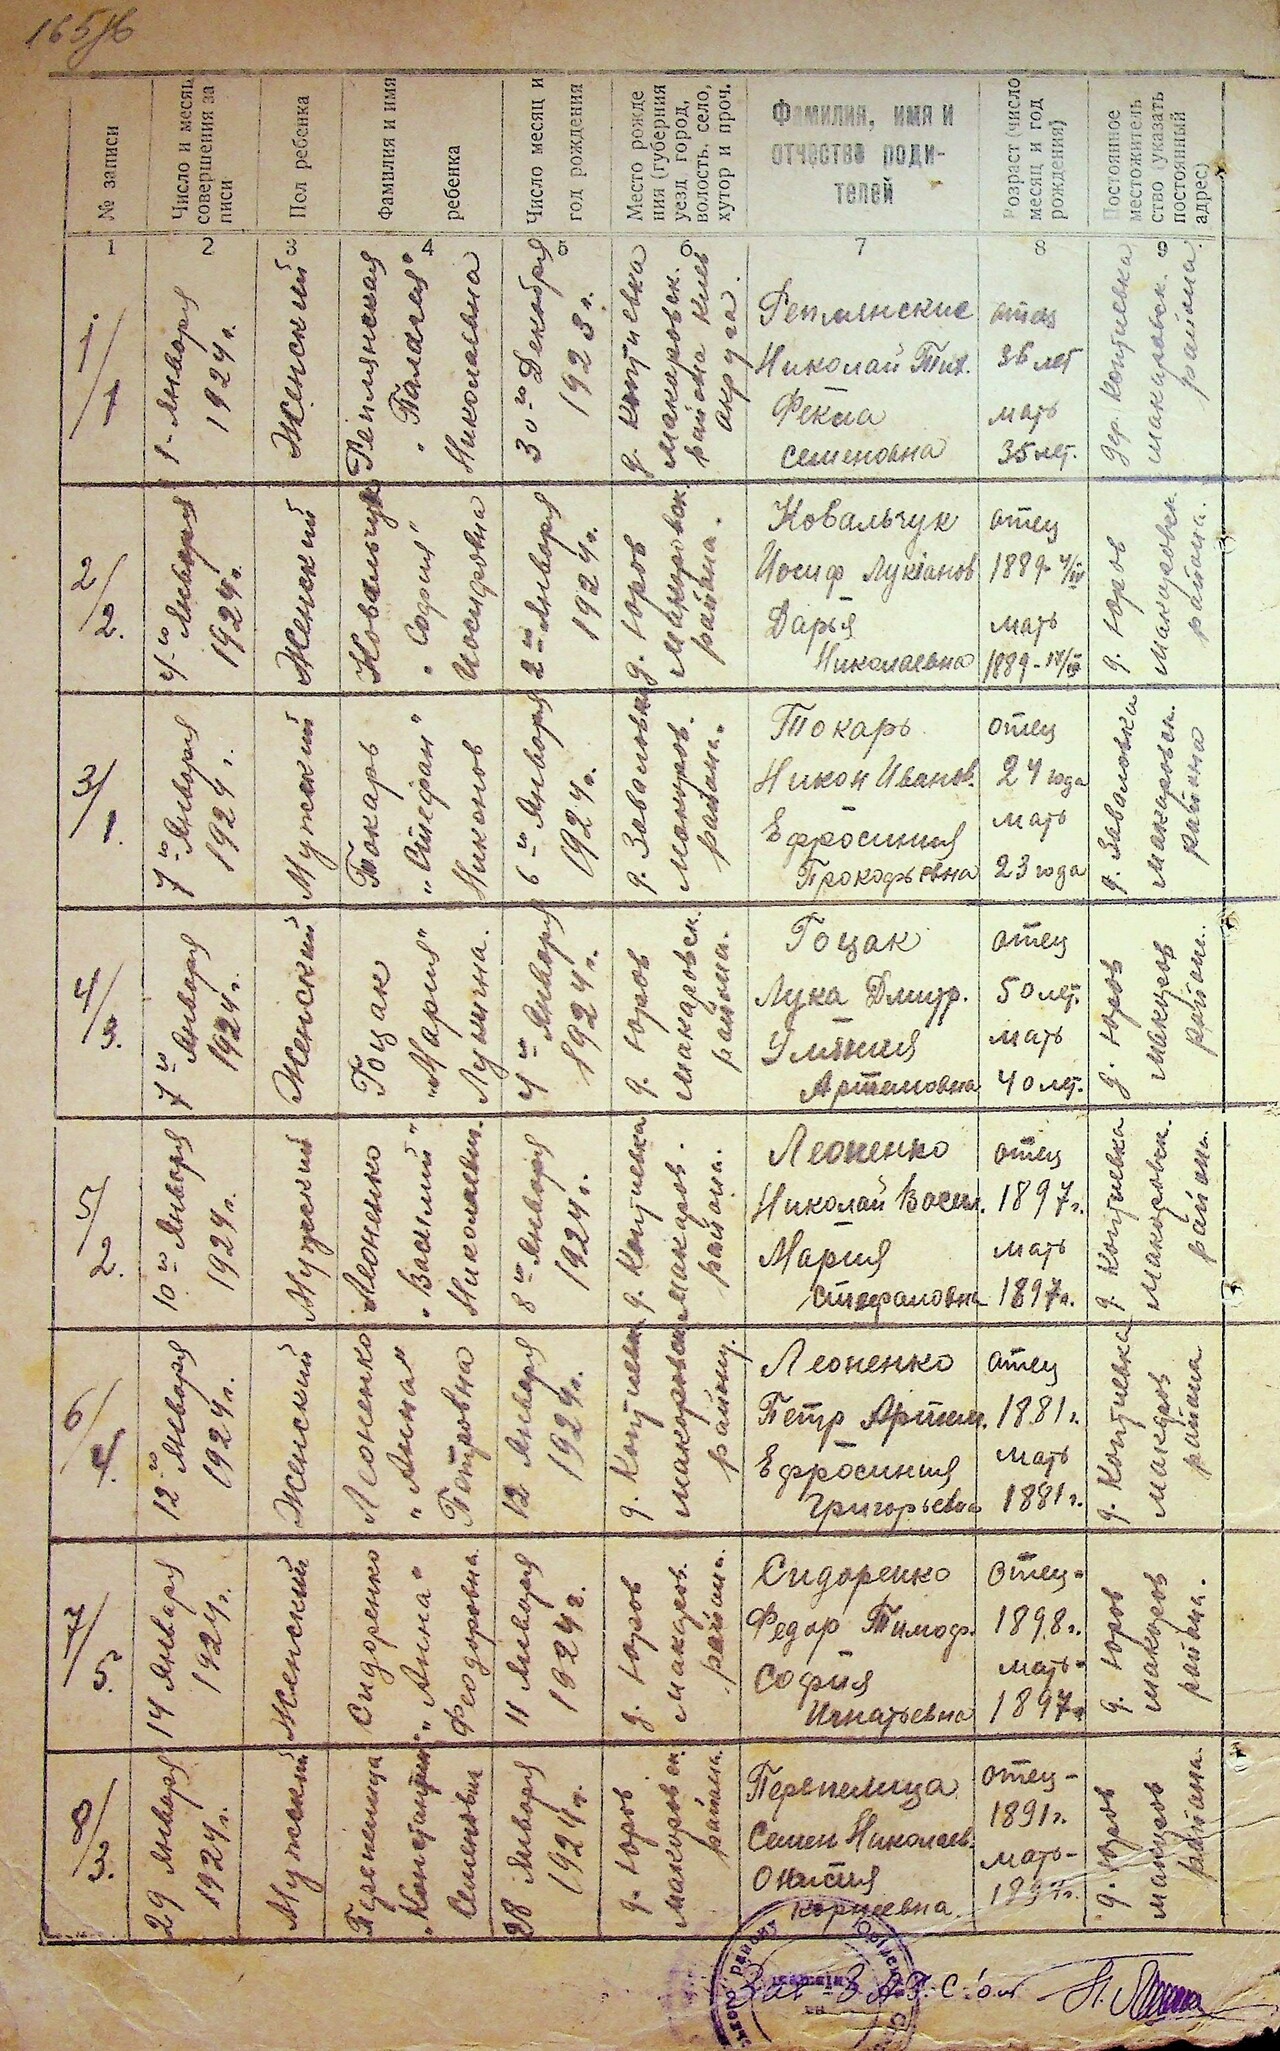 165/6
№ записи
Число и месяц
совершения за
писи
Пол ребенка
Фамилия и имя
ребенка
Число месяц и
год рождения
Место рожде
ния (губерния
уезд, город,
волость. село,
хутор и проч.
Фамилия, имя и
отчество роди-
телей
Возраст (число
месяц и год
рождения)
Постоянное
местожитель
ство (указать
постоянный
адрес)
1 2 3 4 5 6 7 8 9
1/1
1-Января
1924 г.
Женский
Репмянская
"Палагея"
Николаевна
30-го Декабря
1923 г.
д. Копиевка
Макаровск.
района Киев
округа.
Репмянские
Николай Тих.
Фекла
Семеновна
отец
36 лет
мать
35 лет.
дер. Копиевка
Макаровск.
района.
2/2.
4-го Января
1924 г.
Женский
Ковальчук
"София"
Иосифовна
2-го Января
1924 г.
д. Юров
Макаровск.
района.
Ковальчук
Иосиф Лукianов
Дарья
Николаевна
отец
1889
мать
1889
д. Юров
Макаровск.
района.
3/1.
7-го Января
1924 г.
Мужской
Токарь
"Стефан"
Никонов
6-го Января
1924 г.
д. Заваловка
Макаров.
района.
Токарь
Никон Иванов.
Ефросиния
Прокофьевна
отец
24 года
мать
23 года
д. Заваловка
Макаровск.
района
4/3.
7-го Января
1924 г.
Женский
Гоцак
"Мария"
Лукична.
4-го Января
1924 г.
д. Юров
Макаровск.
района.
Гоцак
Лука Дмитр.
Ульяния
Артемовна
отец
50 лет.
мать
40 лет.
д. Юров
Макаров
район.
5/2.
10-го Января
1924 г.
Мужский
Леоненко
"Василий"
Николаевич.
8-го Января
1924 г.
д. Копиевка
Макаров.
района.
Леоненко
Николай Васил.
Мария
Стефановна
отец
1897 г.
мать
1897 г.
д. Копиевка
Макаровск.
района.
6/4.
12-го Января
1924 г.
Женский
Леоненко
"Анна"
Петровна
12 Января
1924 г.
д. Копиевка
Макаровск
району.
Леоненко
Петр Артем.
Ефросиния
Григорьевна
отец
1881 г.
мать
1881 г.
д. Копиевка
Макаров
района
7/5.
14 Января
1924 г.
Женский
Сидоренко
"Анна"
Феодоровна.
11 Января
1924 г.
д. Юров
Макаров.
района.
Сидоренко
Федор Тимоф.
София
Игнатьевна
отец-
1898 г.
мать-
1897 г.
д. Юров
Макаров
района.
8/3.
29 Января
1924 г.
Мужский
Перепелица
"Константин"
Семенович
28 Января
1924 г.
д. Юров.
Макаровск.
района.
Перепелица
Семен Николаев.
Онисия
Корнеевна.
отец-
1891 г.
мать-
д. Юров
Макаров
района.
Зав-ЗАГС'ом